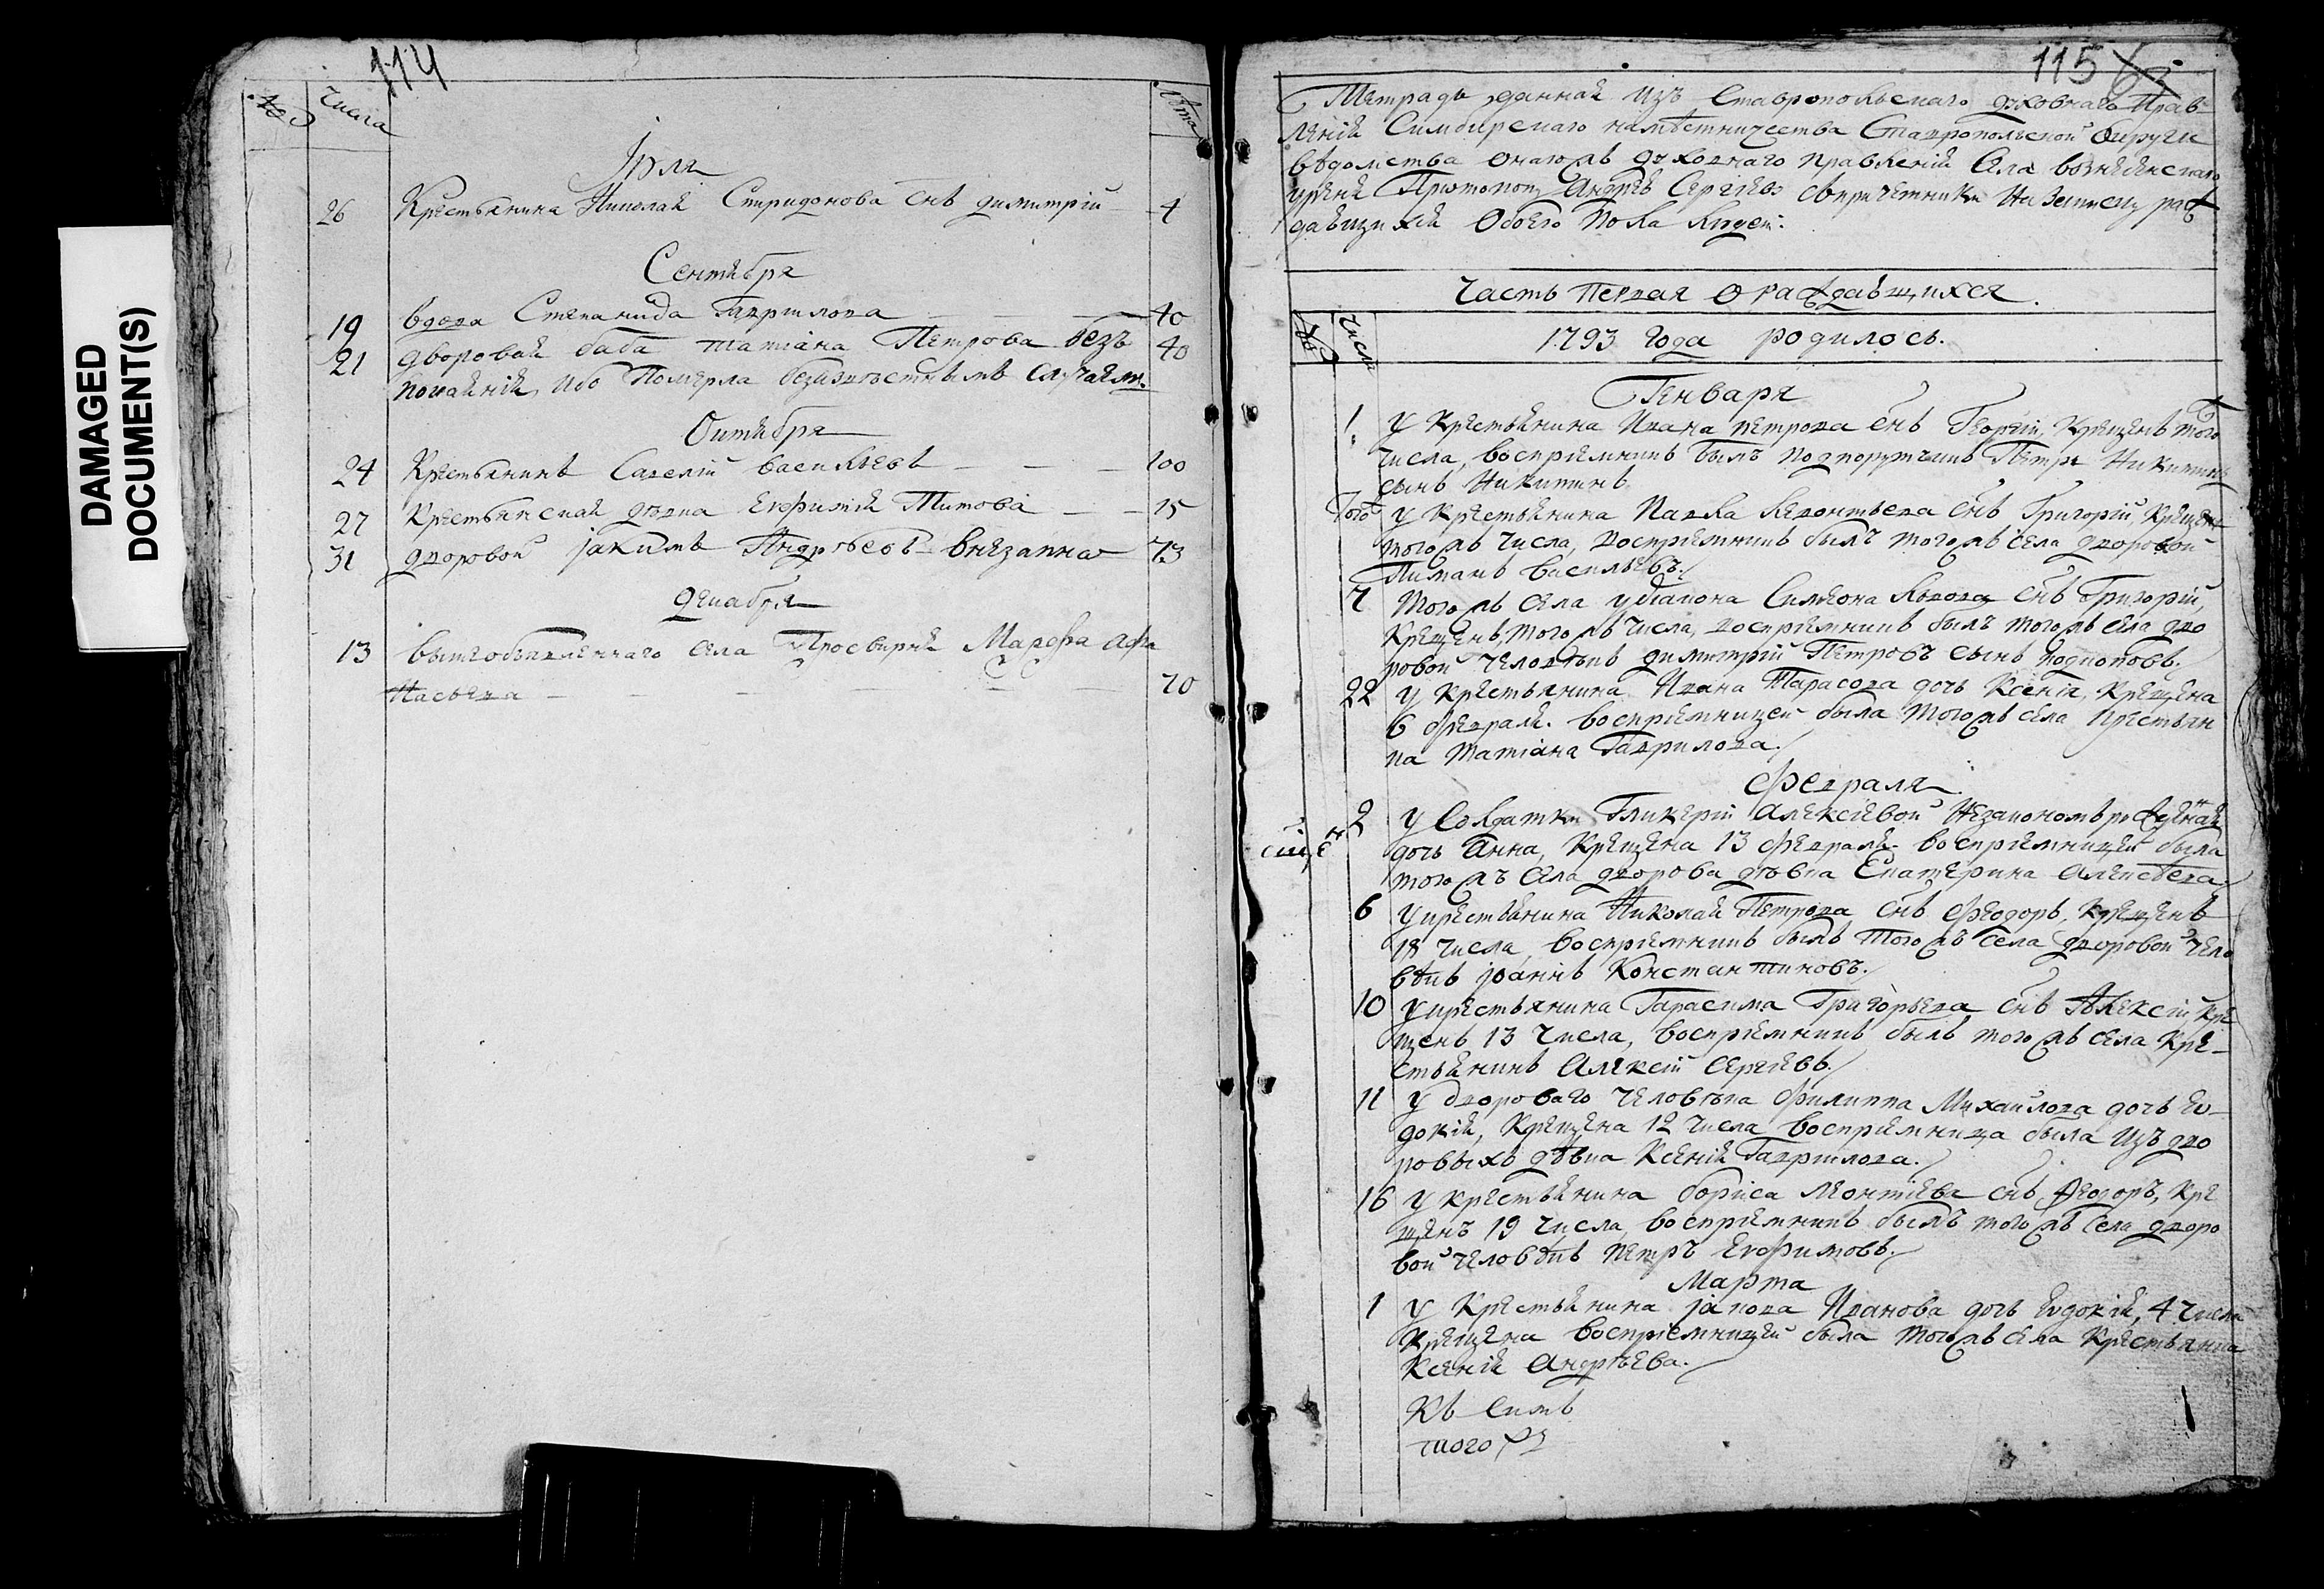 DAMAGED
DOCUMENT(S)
114
№
Числа
Лѣта
Іюля
26 Крестьянина Николая Спиридонова снъ Димитрій 4
Сентября
19 вдова Степанида Гаврилова 40
21 дворовая баба татіана Петрова безъ 40
покаянія, ибо Померла безизвѣстнымъ случаемъ.
Октября
24 Крестьянинъ Савелій васильевъ 100
27 Крестьянская дѣвка Евфимія Титова 15
31 дворовой іакимъ Андрѣевъ внезапна 73
Декабря
13 вышеобъявленнаго села Просвирня Марфа Афа
насьева 70
115
Тетрадь данная Изъ Ставропольскаго духовнаго Прав-
ленія Симбирскаго намѣстничества Ставропольской округи
вѣдомства онагожъ духовнаго правленія Села вознесенскаго
Протопопу Андрѣю Сергіеву на записку раж
дающихся обоего пола людей.
Часть Первая о раждающихся.
№
Числа
1793 года родилось.
Генваря
1 У Крестьянина Ивана петрова снъ Георгій, Крещенъ того
числа, воспріемникъ былъ подпорутчикъ Петръ Никитинъ
сынъ Никитинъ.
Того У Крестьянина Павла Леонтьева снъ Григорій, Крещенъ
тогожъ числа, воспріемникъ былъ тогожъ села дворовой
Пиманъ васильевъ.
7 тогожъ села у діакона Симеона Львова снъ Григорій,
Крещенъ тогожъ числа, воспріемникъ былъ тогожъ села дво
ровой человѣкъ димитрій Петровъ сынъ
22 У Крестьянина Ивана Тарасова дочь Ксенія, Крещена
6 февраля. воспріемницей была тогожъ села крестьян
ка татіана Гаврилова.
Февраля
2 У Солдатки Гликеріи Алексіевой незаконнорожденная
дочь Анна, Крещена 13 февраля. воспріемницей была
тогожъ села дворова дѣвка Екатерина Алексѣева.
6 У крестьянина Николая Петрова снъ Феодоръ, Крещенъ
18 числа, воспріемникъ былъ тогожъ села дворовой чело
вѣкъ іоаннъ Константиновъ.
10 У крестьянина Гарасима Григорьева снъ Алексій Кре
щенъ 13 числа, воспріемникъ былъ тогожъ села Кре-
стьянинъ Алексій Сергіевъ.
11 У двороваго человѣка Филиппа Михайлова дочь Ев-
докія, Крещена 12 числа воспріемница была Изъ дво
ровыхъ дѣвка Ксенія Гаврилова.
16 У крестьянина бориса Леонтіева снъ Феодоръ, Кре
щенъ 19 числа, воспріемникъ былъ тогожъ села дворо
вой человѣкъ Петръ Евфимовъ.
Марта
1 У Крестьянина іакова Иванова дочь Евдокія, 4 числа
Крещена воспріемницей была тогожъ села Крестьянка
Ксенія Андрѣева.
Къ Симъ
1